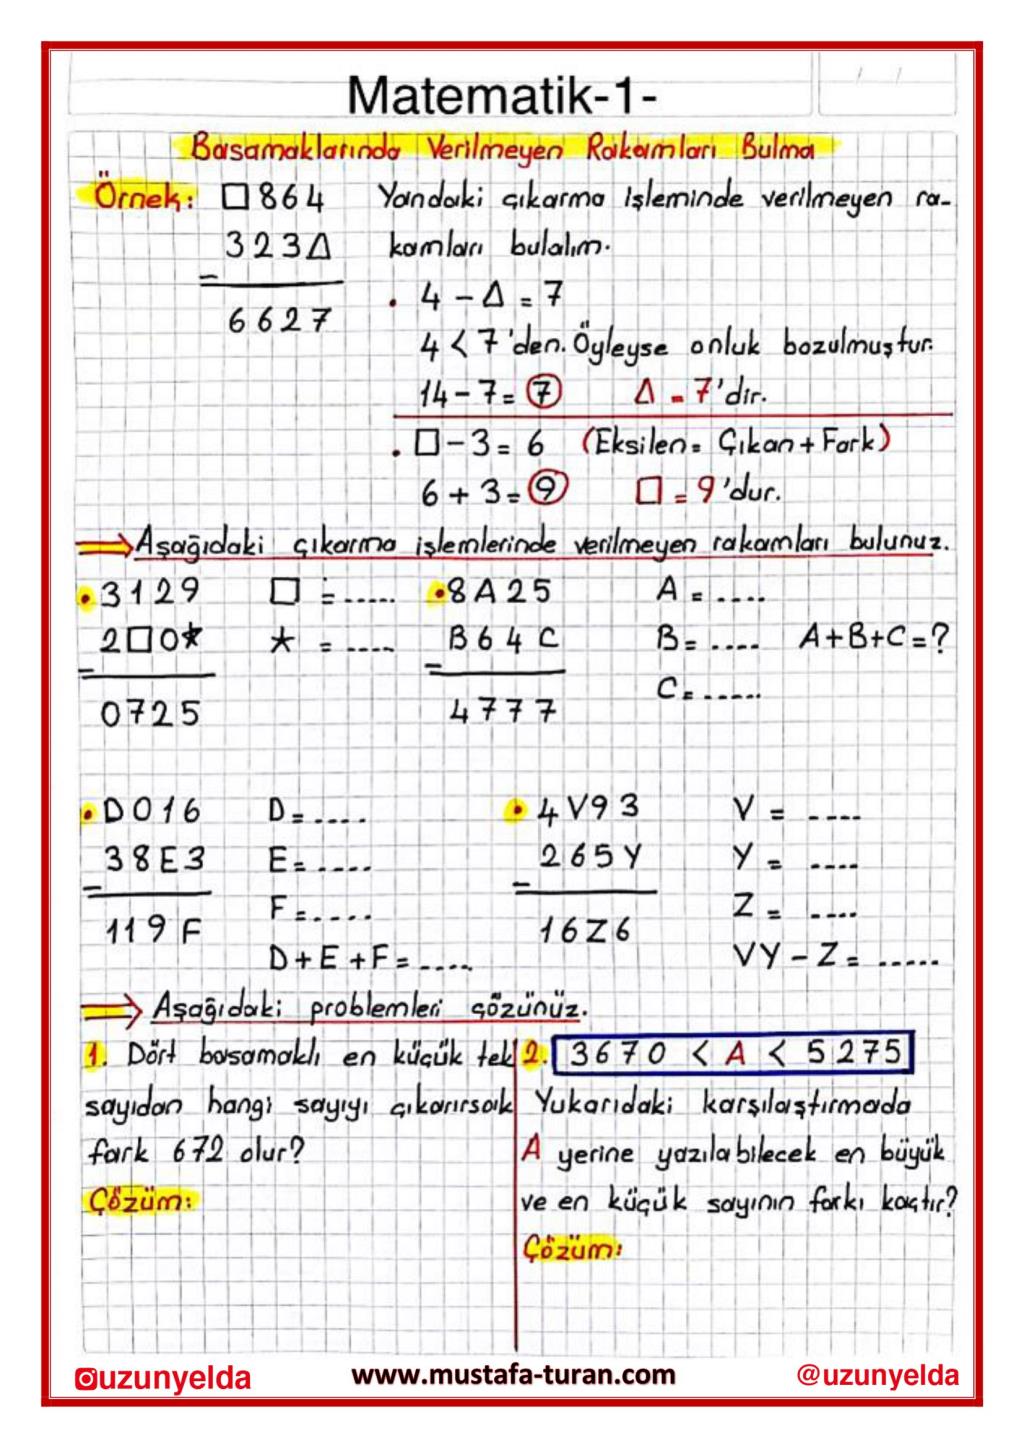 Matematik-1-
Basamaklarında Verilmeyen Rakamları Bulma
Örnek: □864 Yandaki çıkarma işleminde verilmeyen ra-
323Δ kamları bulalım.
-
6627
. 4 - Δ = 7
4 < 7'den. Öyleyse onluk bozulmuştur.
14 - 7 = 7 Δ = 7'dir.
. □ - 3 = 6 (Eksilen = Çıkan + Fark)
6 + 3 = 9 □ = 9'dur.
⇒ Aşağıdaki çıkarma işlemlerinde verilmeyen rakamları bulunuz.
• 3129 □ = ..... • 8A25 A = ....
2□0★ ★ = .... B64C B = .... A+B+C=?
- - C = .....
0725 4777
• D016 D = .... • 4V93 V = ....
38E3 E = .... 265Y Y = ....
- F = ..... - Z = ....
119F 16Z6
D+E+F = .... VY - Z = .....
⇒ Aşağıdaki problemleri çözünüz.
1. Dört basamaklı en küçük tek
sayıdan hangi sayıyı çıkarırsak
fark 672 olur?
Çözüm:
2. 3670 < A < 5275
Yukarıdaki karşılaştırmada
A yerine yazılabilecek en büyük
ve en küçük sayının farkı kaçtır?
Çözüm:
uzunyelda www.mustafa-turan.com @uzunyelda